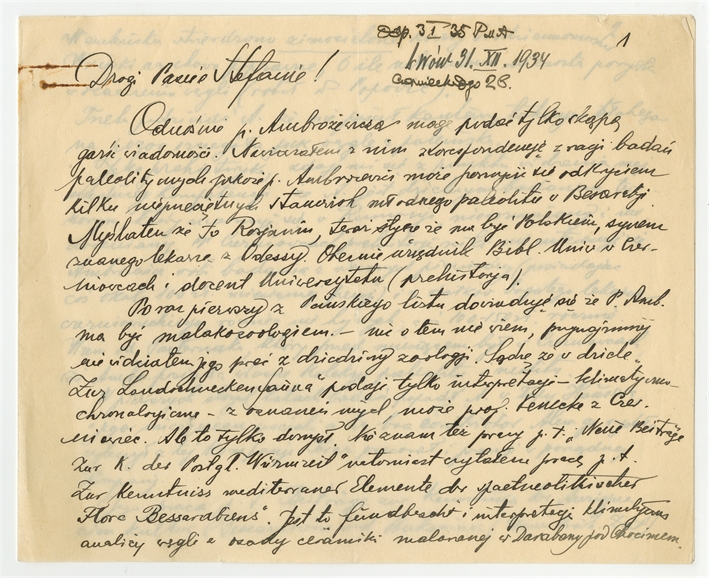 odp. 3 I 35 P.M.A
1
Lwów 31. XII. 1934
Czarnieckiego 28.
Drogi Panie Stefanie!
Odnośnie p. Ambrożewicza mogę podać tylko skąpą
garść wiadomości. Nawiązałem z nim korespondencję z racji badań
paleolitycznych jako że p. Ambrożewicz może poszczycić się odkryciem
kilku nieprzeciętnych stanowisk młodnego paleolitu w Besarabji.
Myślałem że to Rosjanin, teraz słyszę że ma być Polakiem, synem
znanego lekarza z Odessy. Obecnie urzędnik Bibl. Uniw w Czer-
niowcach i docent Uniwersytetu (prehistorja).
Po raz pierwszy z Pańskiego listu dowiaduję się że P. Amb.
ma być malakozoologiem. – nic o tem nie wiem, przynajmniej
nie widziałem jego prac z dziedziny zoologji. Sądzę że w dziele
"Zur Landschneckenfauna" podaje tylko interpretacje – klimatyczno-
chronologiczne – z oznaczeń innych, może prof. z Czer-
niowiec. Ale to tylko domysł. Nie znam też pracy p. t. "Neue Beiträge
zur K. der Postgl. Wärmzeit" natomiast czytałem pracę p. t.
Zur Kenntniss mediterraner Elemente der spaetneolithischer
Flora Bessarabiens". Jest to i interpretacji klimatyczna
analizy węgli z osady ceramiki malowanej w Darabany pod Chocimem.